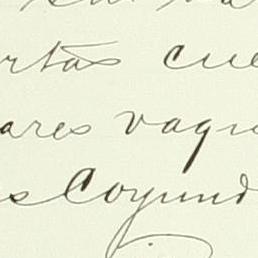 rtas cue
ares vagu
s Coyund